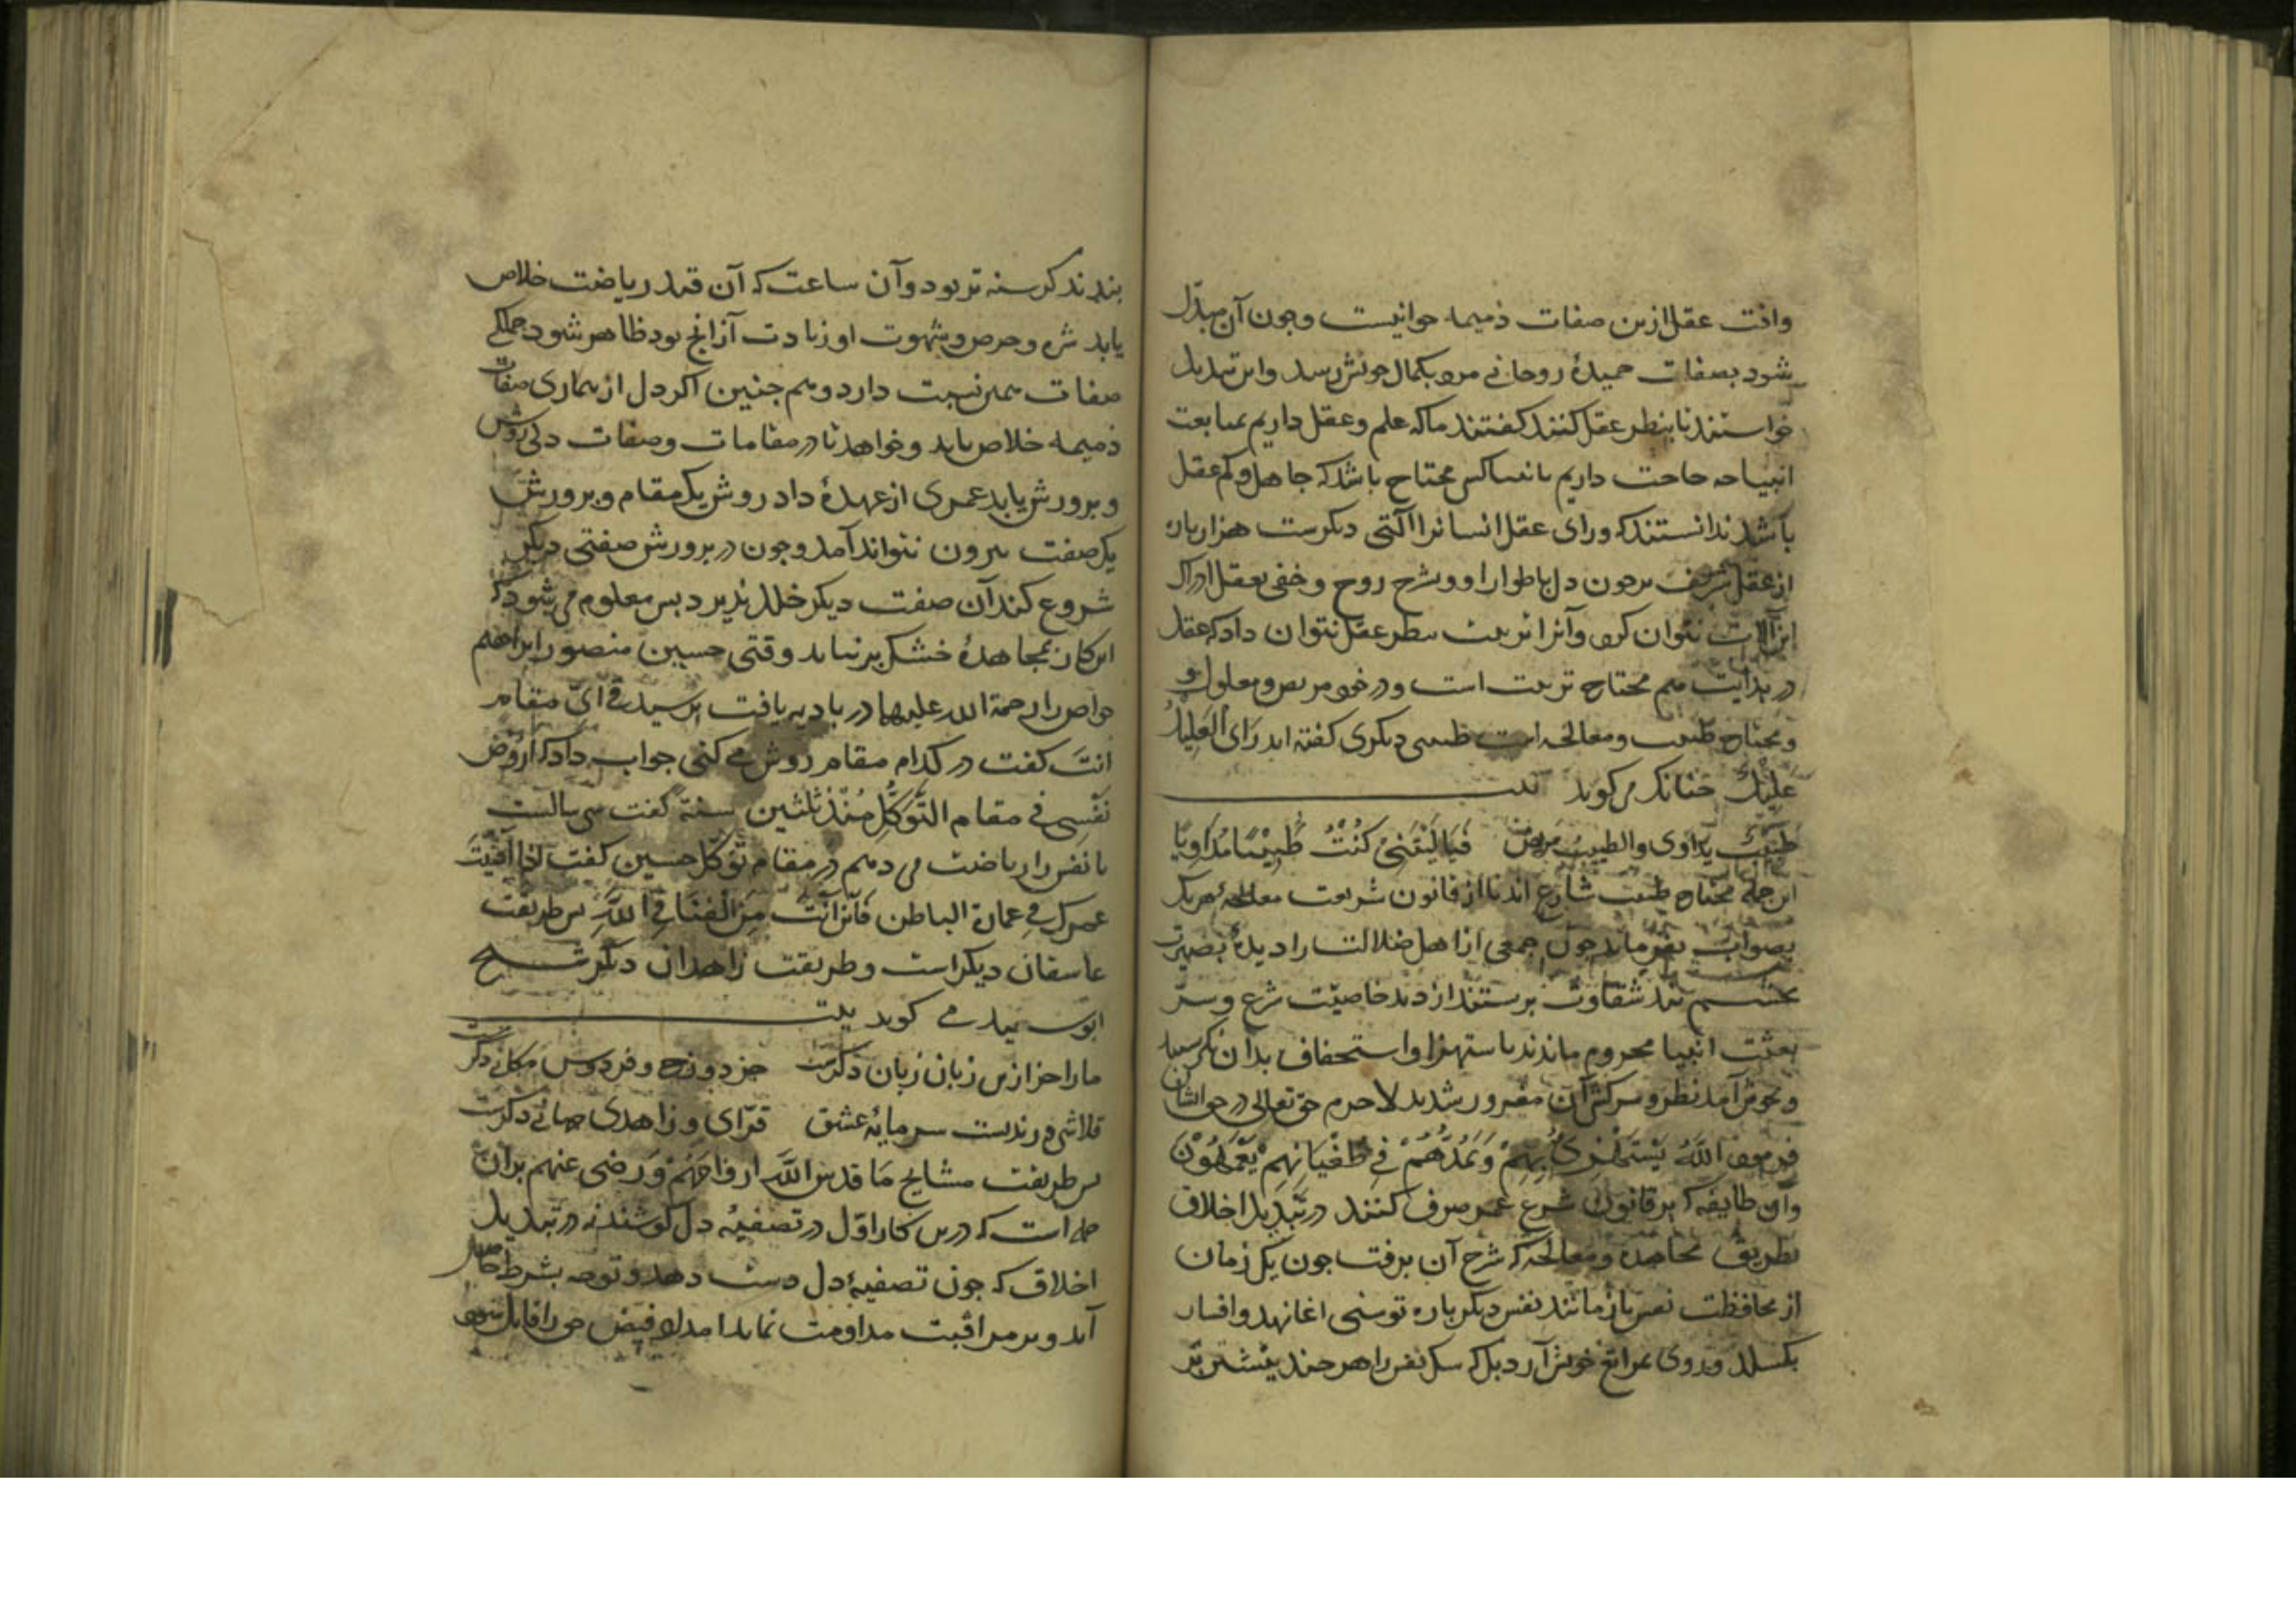 وافت عقل ازین صفات ذمیمه حیوانیست و چون آن مبدّل
شود بصفات حمیدهٔ روحانی مرد بکمال خویش رسد و این تبدیل
خواستند تا بنظر عقل کنند کفتند ما که علم و عقل داریم بمتابعت
انبیا چه حاجت داریم بانبیا کسی محتاج باشد که جاهل و کم عقل
باشد ندانستند که ورای عقل انسانرا آلتی دیکرست هزار باره
از عقل شریف تر چون دل باطوار او و سرّ و روح و خفی بعقل ادراک
این آلات نتوان کرد و آنرا تربیت بنظر عقل نتوان داد که عقل
در بدایت هم محتاج تربیت است و در خود مریض و معلول و
و محتاج طبیب و معالجه است طبیبی دیکری کفته اند رَای العَلیلِ
عَلیلٌ چنانک می کوید بیت
طَبیبٌ یداوی والطبیبُ مریض فَیَا لَیْتَنِی کُنْتُ طَبِیْبًا مُدَاوِیًا
این جمله محتاج طبیب شارع اند تا از قانون شریعت معالجهٔ هر یک
بصواب بفرماید چون جمعی از اهل ضلالت را دیدهٔ بصیرت
بچشم بند شقاوت بربستند از دید خاصیّت شرع و سرّ
بعثت انبیا محروم ماندند باستهزا و استخفاف بدان نکرستند
و بخوش آمد نظر و سرکشی آن مغرور شدند لاجرم حق تعالی در حق ایشان
فرمود اللّٰهُ یَسْتَهْزِئُ بِهِمْ وَیَمُدُّهُمْ فِی طُغْیَانِهِمْ یَعْمَهُوْنَ
و آن طایفه که بر قانون شرع عمر صرف کنند در تبدیل اخلاق
بطریق مجاهده و معالجه که شرح آن برفت چون یک زمان
از محافظت نفس باز مانند نفس دیکر باره توسنی آغاز نهد و افسار
بکسلد و روی بمراتع خویش آرد بل که سک نفس را هر چند بیشتر بر
بندند کرسنه تر بود و آن ساعت که آن قید ریاضت خلاص
یابد شره و حرص و شهوت او زیادت از آنچ بود ظاهر شود جملکی
صفات همین نسبت دارد و هم چنین اکر دل از بیماری صفات
ذمیمه خلاص یابد و خواهد تا در مقامات و صفات دلی روش
و پرورش یابد عمری از عهدهٔ داد روش یک مقام و پرورش
یک صفت بیرون نتواند آمد و چون در پرورش صفتی دیکر
شروع کند آن صفت دیکر خلل پذیرد پس معلوم می شود که
این کار بمجاهدهٔ خشک بر نیاید وقتی حسین منصور ابراهیم
خواص را رحمة الله علیهما در بادیه یافت پرسید فی ایّ مقام
انتَ کفت در کدام مقام روش می کنی جواب داد که اُروّض
نَفْسِی فی مقام التَّوَکُّلِ مُنْذُ ثلثین سنة کفت سی سالست
تا نفس را ریاضت می دهم در مقام توکّل حسین کفت اذا اَفْنَیْتَ
عمرک فی عمارة الباطن فَاَیْنَ اَنْتَ مِنَ الْفَنَا فِی اللّٰهِ پس طریقت
عاشقان دیکر است و طریقت زاهدان دیکر شیخ
ابو سعید می کوید بیت
ما را جز ازین زبان زبان دکرست جز دوزخ و فردوس مکانی دکرست
قلاشی و رندیست سرمایهٔ عشق قرّای و زاهدی جهانی دکرست
پس طریقت مشایخ مَا قدس اللّٰه ارواحَهُمْ وَرضی عنهم بران
جمله است که درین کار اوّل در تصفیهٔ دل کوشند نه در تبدیل
اخلاق که چون تصفیهٔ دل دست دهد و توجه بشرط حاصل
آید و بر مراقبت مداومت نماید امداد فیض حق را قابل شود